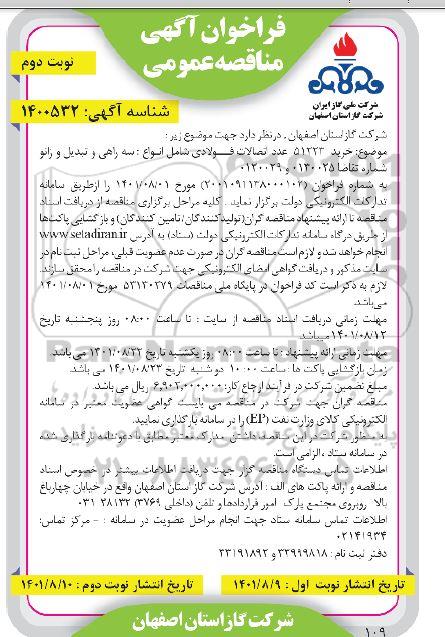 فراخوان آگهی
مناقصه عمومی
نوبت دوم
شرکت ملی گاز ایران
شرکت گاز استان اصفهان
شناسه آگهی: ۱۴۰۰۵۳۲
شرکت گاز استان اصفهان , درنظر دارد جهت موضوع زیر :
موضوع: خرید ۵۱۲۲۳ عدد اتصالات فــولادی شامل انـواع : سه راهی و تبدیل و زانو
شماره تقاضا ۰۱۳۰۰۲۵ و ۰۱۲۰۰۲۹
به شماره فراخوان (۲۰۰۱۰۹۱۱۳۸۰۰۰۱۰۲) مورخ ۱۴۰۱/۰۸/۰۱ را ازطریق سامانه
تدارکات الکترونیکی دولت برگزار نماید . کلیه مراحل برگزاری مناقصه از دریافت اسناد
مناقصه تا ارائه پیشنهاد مناقصه گران(تولیدکنندگان/ تامین کنندگان) و بازگشایی پاکت‌ها
از طریق درگاه سامانه تدارکات الکترونیکی دولت (ستاد) به آدرس www.setadiran.ir
انجام خواهد شد و لازم است مناقصه گران در صورت عدم عضویت قبلی، مراحل ثبت نام در
سایت مذکور و دریافت گواهی امضای الکترونیکی جهت شرکت در مناقصه را محقق سازند.
لازم به ذکر است کد فراخوان در پایگاه ملی مناقصات ۵۳۱۳۰۳۷۹ مورخ ۱۴۰۱/۰۸/۰۱
می‌باشد.
مهلت زمانی دریافت اسناد مناقصه از سایت : تا ساعت ۰۸:۰۰ روز پنجشنبه تاریخ
۱۴۰۱/۰۸/۱۲ میباشد
مهلت زمانی ارائه پیشنهاد : تا ساعت ۰۸:۰۰ روز یکشنبه تاریخ ۱۴۰۱/۰۸/۲۲ می باشد.
زمان بازگشایی پاکت ها : ساعت ۱۰:۰۰ دوشنبه تاریخ ۱۴۰۱/۰۸/۲۳ می باشد.
مبلغ تضمین شرکت در فرآیند ارجاع کار: ۶,۹۰۲,۰۰۰,۰۰۰ ریال می باشد.
مناقصه گران جهت شرکت در مناقصه می بایست گواهی عضویت معتبر در سامانه
الکترونیکی کالای وزارت نفت (EP) را در سامانه بارگذاری نمایند.
به منظور شرکت در این مناقصه داشتن مدارک معتبر مطابق با دعوتنامه بارگذاری شده
در سامانه ستاد ، الزامی است.
اطلاعات تماس دستگاه مناقصه گزار جهت دریافت اطلاعات بیشتر در خصوص اسناد
مناقصه و ارائه پاکت های الف : آدرس شرکت گاز استان اصفهان واقع در خیابان چهارباغ
بالا روبروی مجتمع پارک امور قراردادها و تلفن (داخلی ۳۷۶۹) ۳۸۱۳۲-۰۳۱
اطلاعات تماس سامانه ستاد جهت انجام مراحل عضویت در سامانه : - مرکز تماس:
۰۲۱۴۱۹۳۴
دفتر ثبت نام : ۳۲۹۹۹۸۱۸ و ۳۳۱۹۱۸۹۲
تاریخ انتشار نوبت اول : ۱۴۰۱/۸/۹
تاریخ انتشار نوبت دوم : ۱۴۰۱/۸/۱۰
شرکت گاز استان اصفهان
۱۰۹